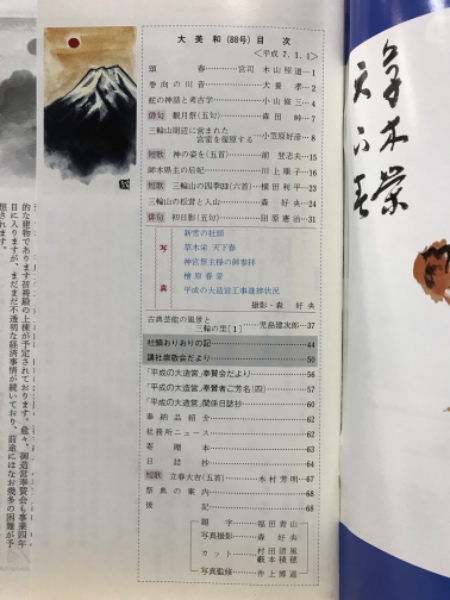 大美和(88号)目次
〈平成7.1.1〉
頌春………宮司 木山照道―1
巻向の川音………犬養孝―2
蛇の神話と考古学………小山修三―4
俳句 観月祭(五句)………森田峠―7
三輪山周辺に営まれた
宮室を復原する………小笠原好彦―8
短歌 神の姿を(五首)………前登志夫―15
師木県主の后妃………川上順子―16
短歌 三輪山の四季(六首)………横田利平―23
三輪山の松茸と人山………森好央―24
俳句 初日影(五句)………田原憲治―31
写真
新雪の社頭
草木栄 天下春
神宮祭主様の御参拝
檜原春景
平成の大造営工事進捗状況
撮影・森好央
古典芸能の風景と
三輪の里[1]………児島建次郎―37
社頭おりおりの記―44
講社崇敬会だより―50
「平成の大造営」奉賛会だより―56
「平成の大造営」奉賛者ご芳名(四)―57
「平成の大造営」関係日誌抄―60
奉納品紹介―62
社務所ニュース―62
寄贈本―63
日誌抄―64
短歌 立春大吉(五首)………木村芳明―67
祭典の案内―68
後記―68
題字―福田青山
写真撮影―森好央
カット―村田清風
藪本積穂
写真監修―井上博道
的な建物であります祈祷殿の上棟が予定されております。愈々、御造営奉賛会も事業四年
目に入りますが、まだまだ不透明な経済事情が続いており、前途にはなお幾多の困難が予
想されます。
草木栄
天下春